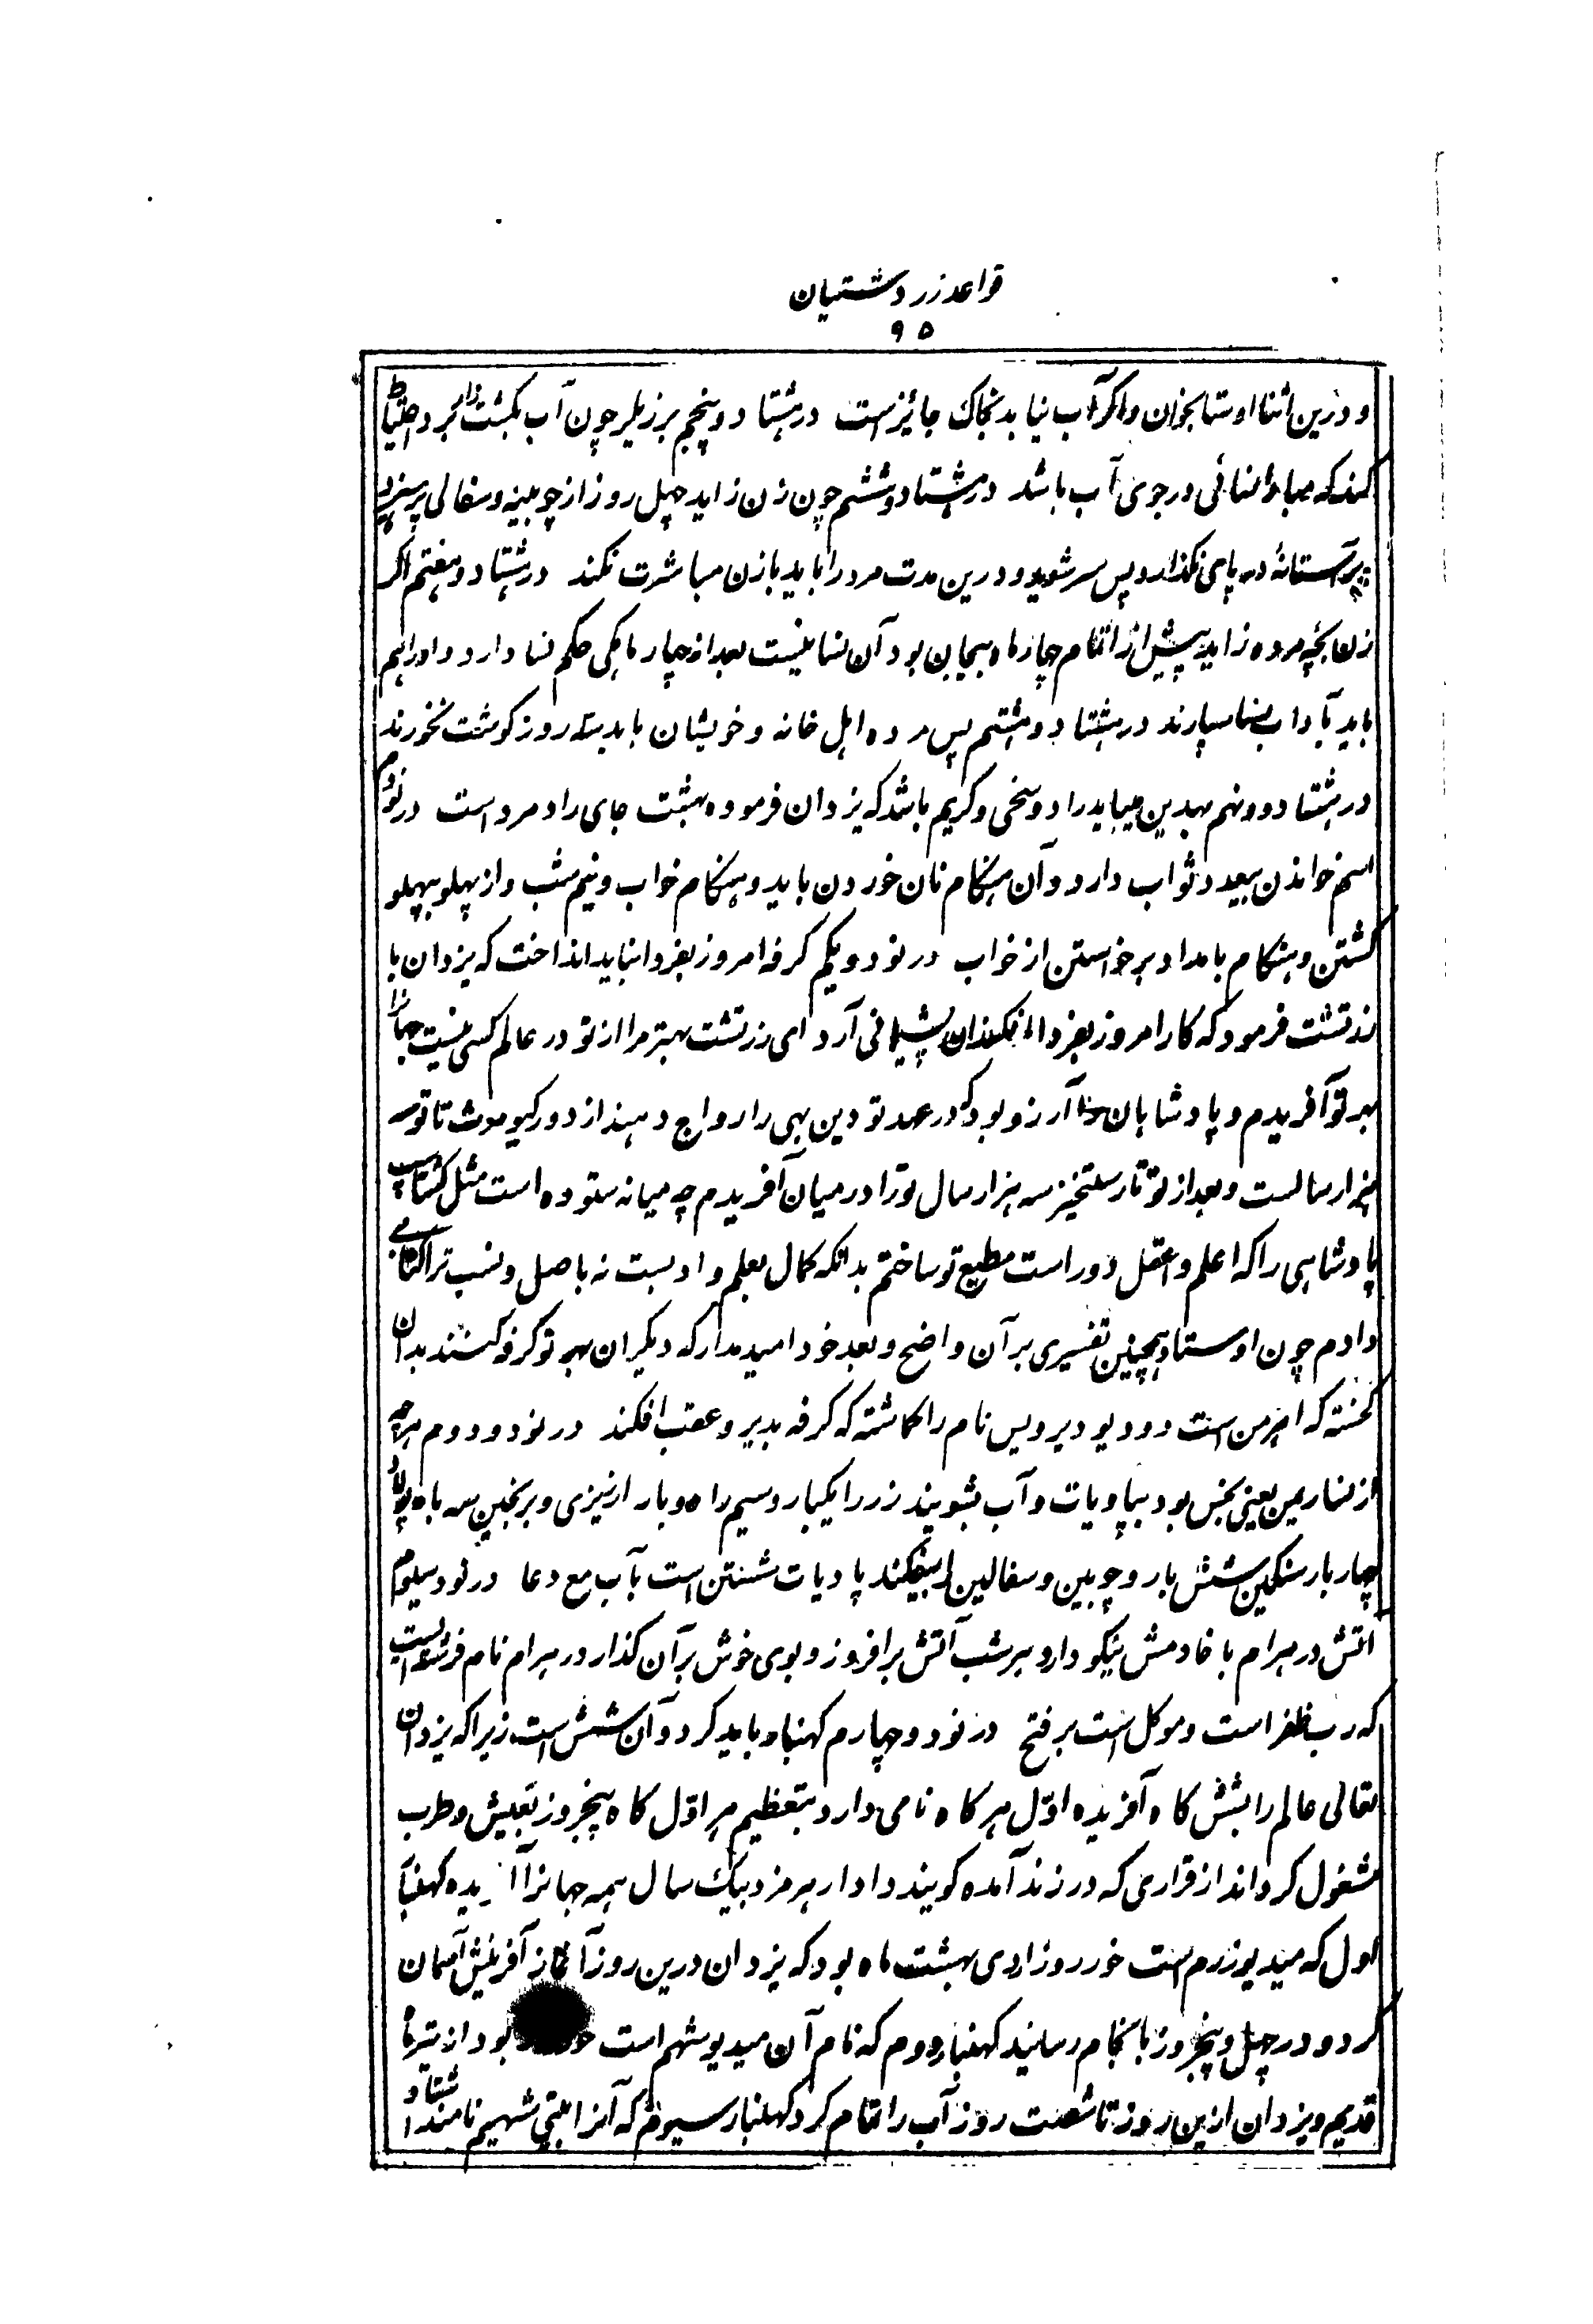 قواعد زردشتیان
۹۵
و درین اثنا اوستا بخوان و اگر آب نیابد بخاک جائز است در هشتاد و پنجم برزیگر چون آب بکشت زار برد احتیاط
کند که مبادا نسائی در جوی آب باشد در هشتاد و ششم چون زن زاید چهل روز از چوبینه و سفالی پرهیزد
بر آستانهٔ در پای نگذارد پس سر شوید و درین مدت مرد را باید بازن مباشرت نکند در هشتاد و هفتم اگر
زن بچه مرده زاید پیش از اتمام چار ماه بیجان بود آن نسا نیست بعد از چار ماهگی حکم نسا دارد و او را هم
باید بآداب نسا سپارند در هشتاد و هشتم پس مرده اهل خانه و خویشان باید سه روز گوشت نخورند
در هشتاد و نهم بهدین میباید راد و سخی و کریم باشد که یزدان فرموده بهشت جای راد مرد است در نودم
اسم خواندن بیحد ثواب دارد و آن هنگام نان خوردن باید و هنگام خواب و نیم شب و از پهلو بپهلو
گشتن و هنگام بامداد برخواستن از خواب در نود و یکم کرفه امروز بفردا نباید انداخت که یزدان با
زرتشت فرمود که کار امروز بفردا افکندن پشیمانی آرد ای زرتشت بهتر مرا از تو در عالم کسی نیست جهانرا
بهر تو آفریدم و پادشاهان را آرزو بود که در عهد تو دین بهی را رواج دهند از دور کیومرث تا تو سه
هزار سالست و بعد از تو تا رستخیز سه هزار سال ترا در میان آفریدم چه میانه ستوده است مثل گشتاسپ
پادشاهی را که اعلم و اعقل دور است مطیع تو ساختم بدانکه کمال بعلم و ادبست نه باصل و نسب ترا کتابے
دادم چون اوستا و همچنین تفسیری بر آن واضح و بعد خود امید مدار که دیگران بهر تو کرفه کنند بدان
گجسته که اهرمن است دو دیو دیر و پس نام را گماشته که کرفه بدیر و عقب افکند در نود و دوم هرچه
از نسا ریمن یعنی نجس بود بپاویات و آب بشویند زر را یکبار و سیم را دو بار ارزیزی و برنجین سه بار پولاد
چهار بار سنگین شش بار و چوبین و سفالین را بیفکند پادیات شستن است بآب مع دعا در نود و سیوم
آتش در بهرام با خادمش نیکو دارد هر شب آتش برافروز و بوی خوش بر آن گذارد در بهرام نام فرشته ایست
که رب ظفر است و موکل است بر فتح در نود و چهارم کهنباه باید کرد و آن شش است زیرا که یزدان
تعالی عالم را بشش گاه آفریده اوّل هر گاه نامی دارد بتعظیم هر اوّل گاه پنجروز بعیش و طرب
مشغول گردانند از قراری که در زند آمده گویند دادار هرمزد بیک سال همه جهانرا آفریده کهنبار
اول که میدیوزرم است خور روز اردی بهشت ماه بود که یزدان درین روز آغاز آفرینش آسمان
کرد و در چهل و پنجروز بانجام رسانید کهنبار دوم که نام آن میدیوشهم است بود از تیرماه
قدیم و یزدان ازین روز تا شصت روز آب را تمام کرد کهنبار سیوم که آنرا پیتی شهیم نامند اشتاد